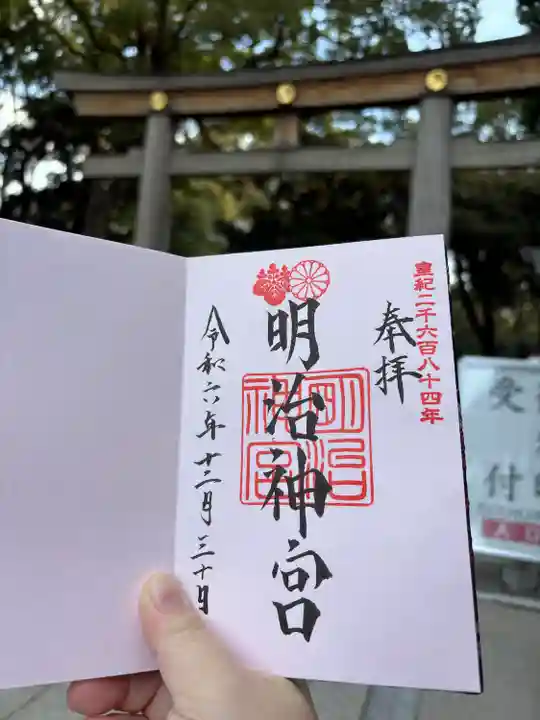 皇紀二千六百八十四年
奉拝
明治神宮
明治神宮
令和六年十二月三十日
受付